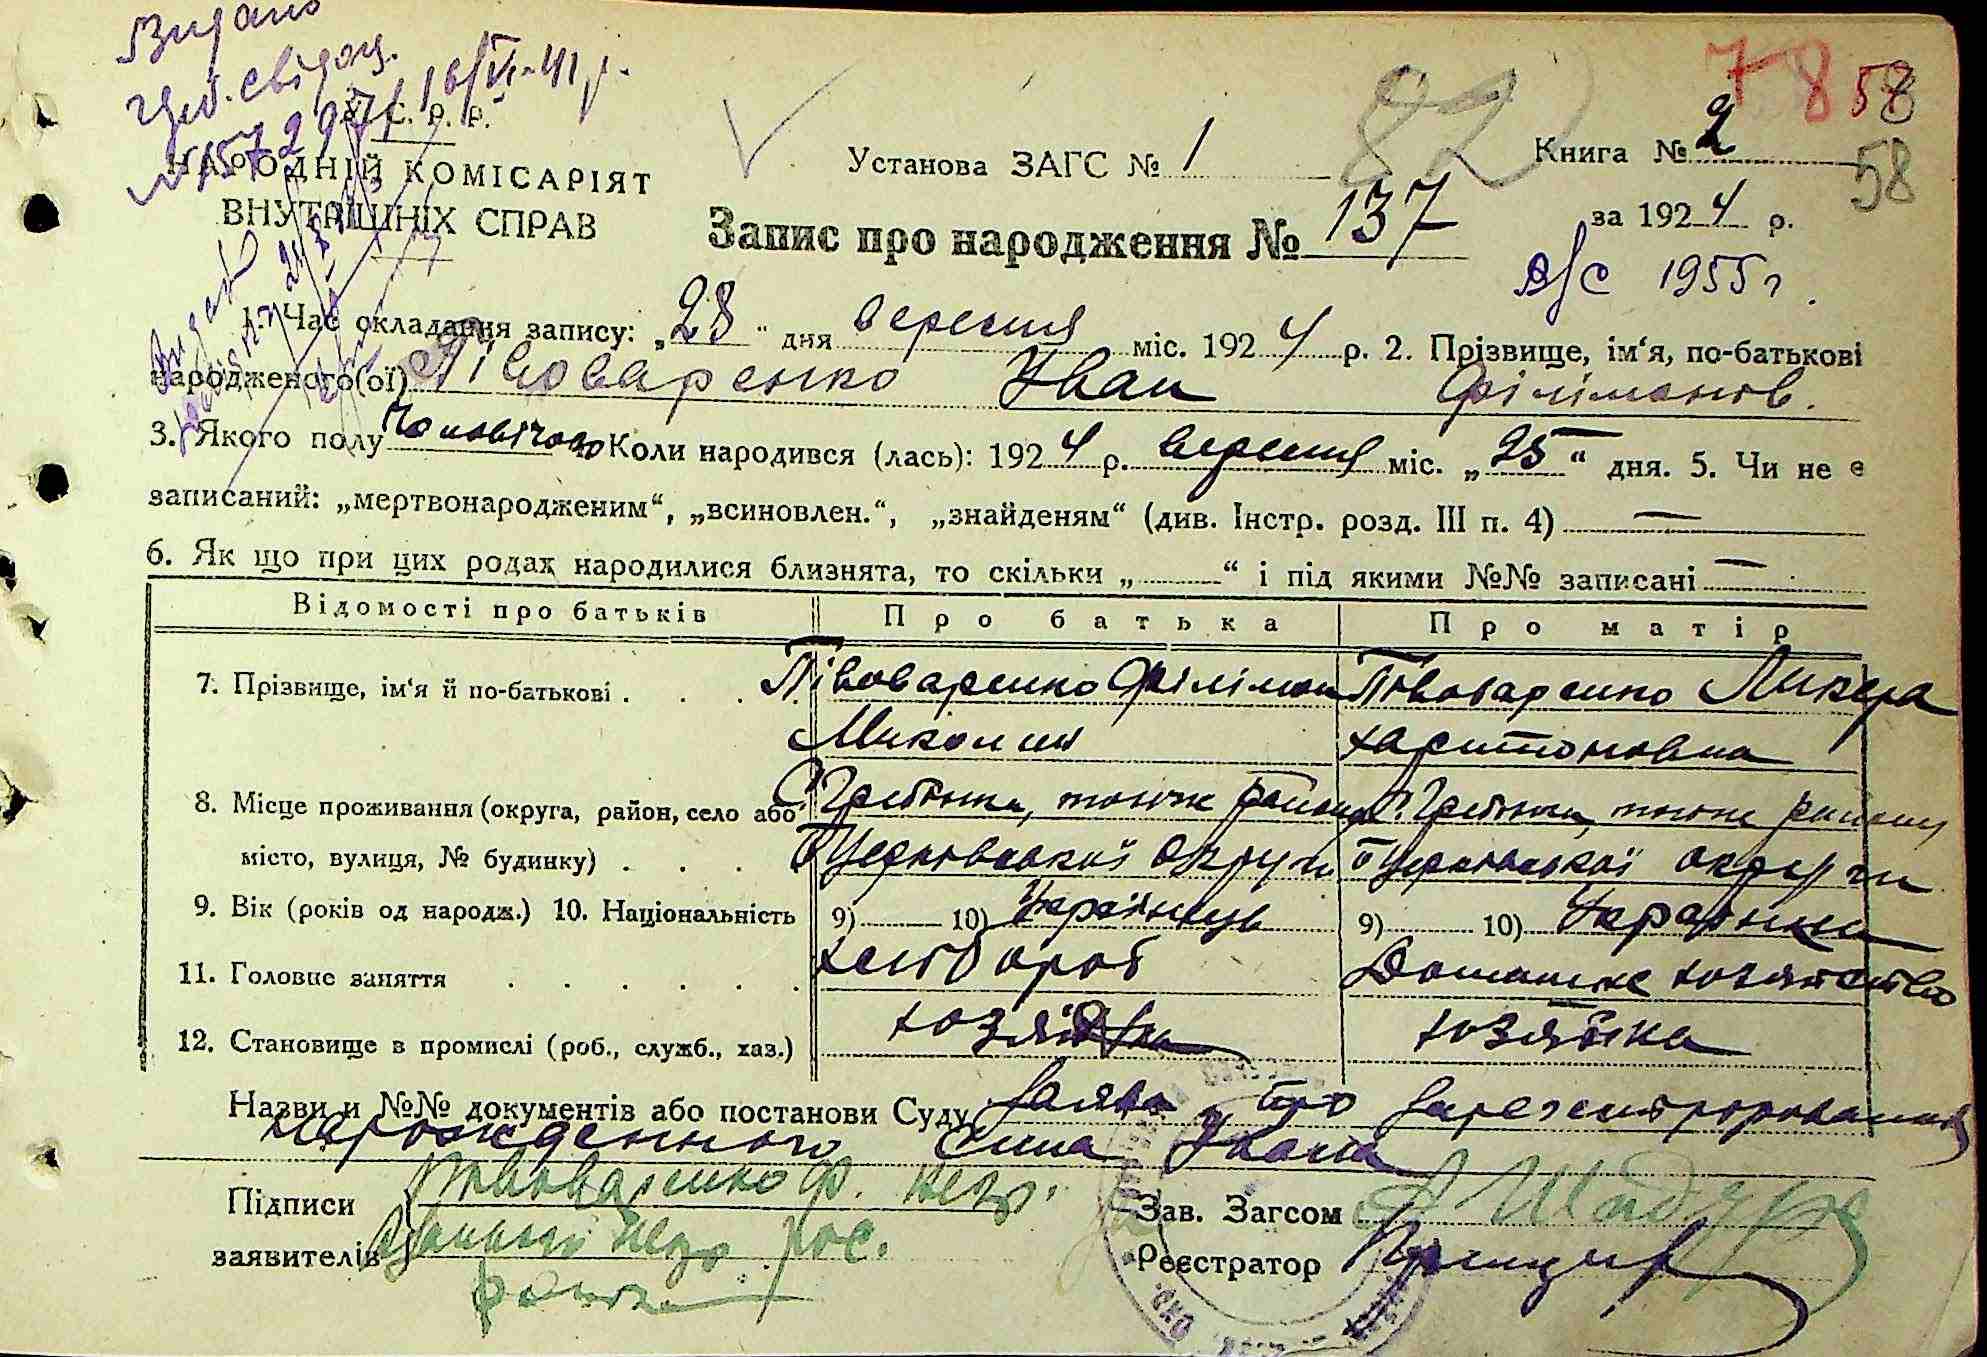 Видано
свідоц.
16/VI-41 р.
У. С. Р. Р.
НАРОДНІЙ КОМІСАРІЯТ
ВНУТРІШНІХ СПРАВ
Установа ЗАГС № 1
82
7 8 58
Книга № 2
58
Запис про народження № 137
за 1924 р.
в/с 1955 г.
1. Час складання запису: „28“ дня вересня міс. 1924 р. 2. Прізвище, ім‘я, по-батькові
народженого(ої) Півоваренко Іван Філімонов.
3. Якого полу чоловічого Коли народився (лась): 1924 р. вересня міс. „25“ дня. 5. Чи не є
записаний: „мертвонародженим“, „всиновлен.“, „знайденям“ (див. Інстр. розд. III п. 4) —
6. Як що при цих родах народилися близнята, то скільки „ “ і під якими №№ записані —
Відомості про батьків Про батька Про матір
7. Прізвище, ім‘я й по-батькові . . . Півоваренко Філімон Півоваренко Ликера
Миколин Харитоновна
8. Місце проживання (округа, район, село або С. Гребінки, того ж району С. Гребінки, того ж району
місто, вулиця, № будинку) . . . БЦерківської округи БЦерківської округи
9. Вік (років од народж.) 10. Національність 9) 10) Українець 9) 10) Українка
11. Головне заняття . . . . . . Хлібороб Домашнє хозяйство
12. Становище в промислі (роб., служб., хаз.) хозяйка
Назви и №№ документів або постанови Суду Заява про
нарожденного сина Івана
Підписи Півоваренко Ф. незр.
заявителів
Зав. Загсом
Реєстратор